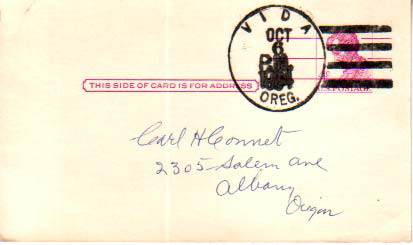 VIDA
OCT
6
PM
OREG.
THIS SIDE OF CARD IS FOR ADDRESS
POSTAGE
Carl H Connet
2305 Salem Ave
Albany
Oregon